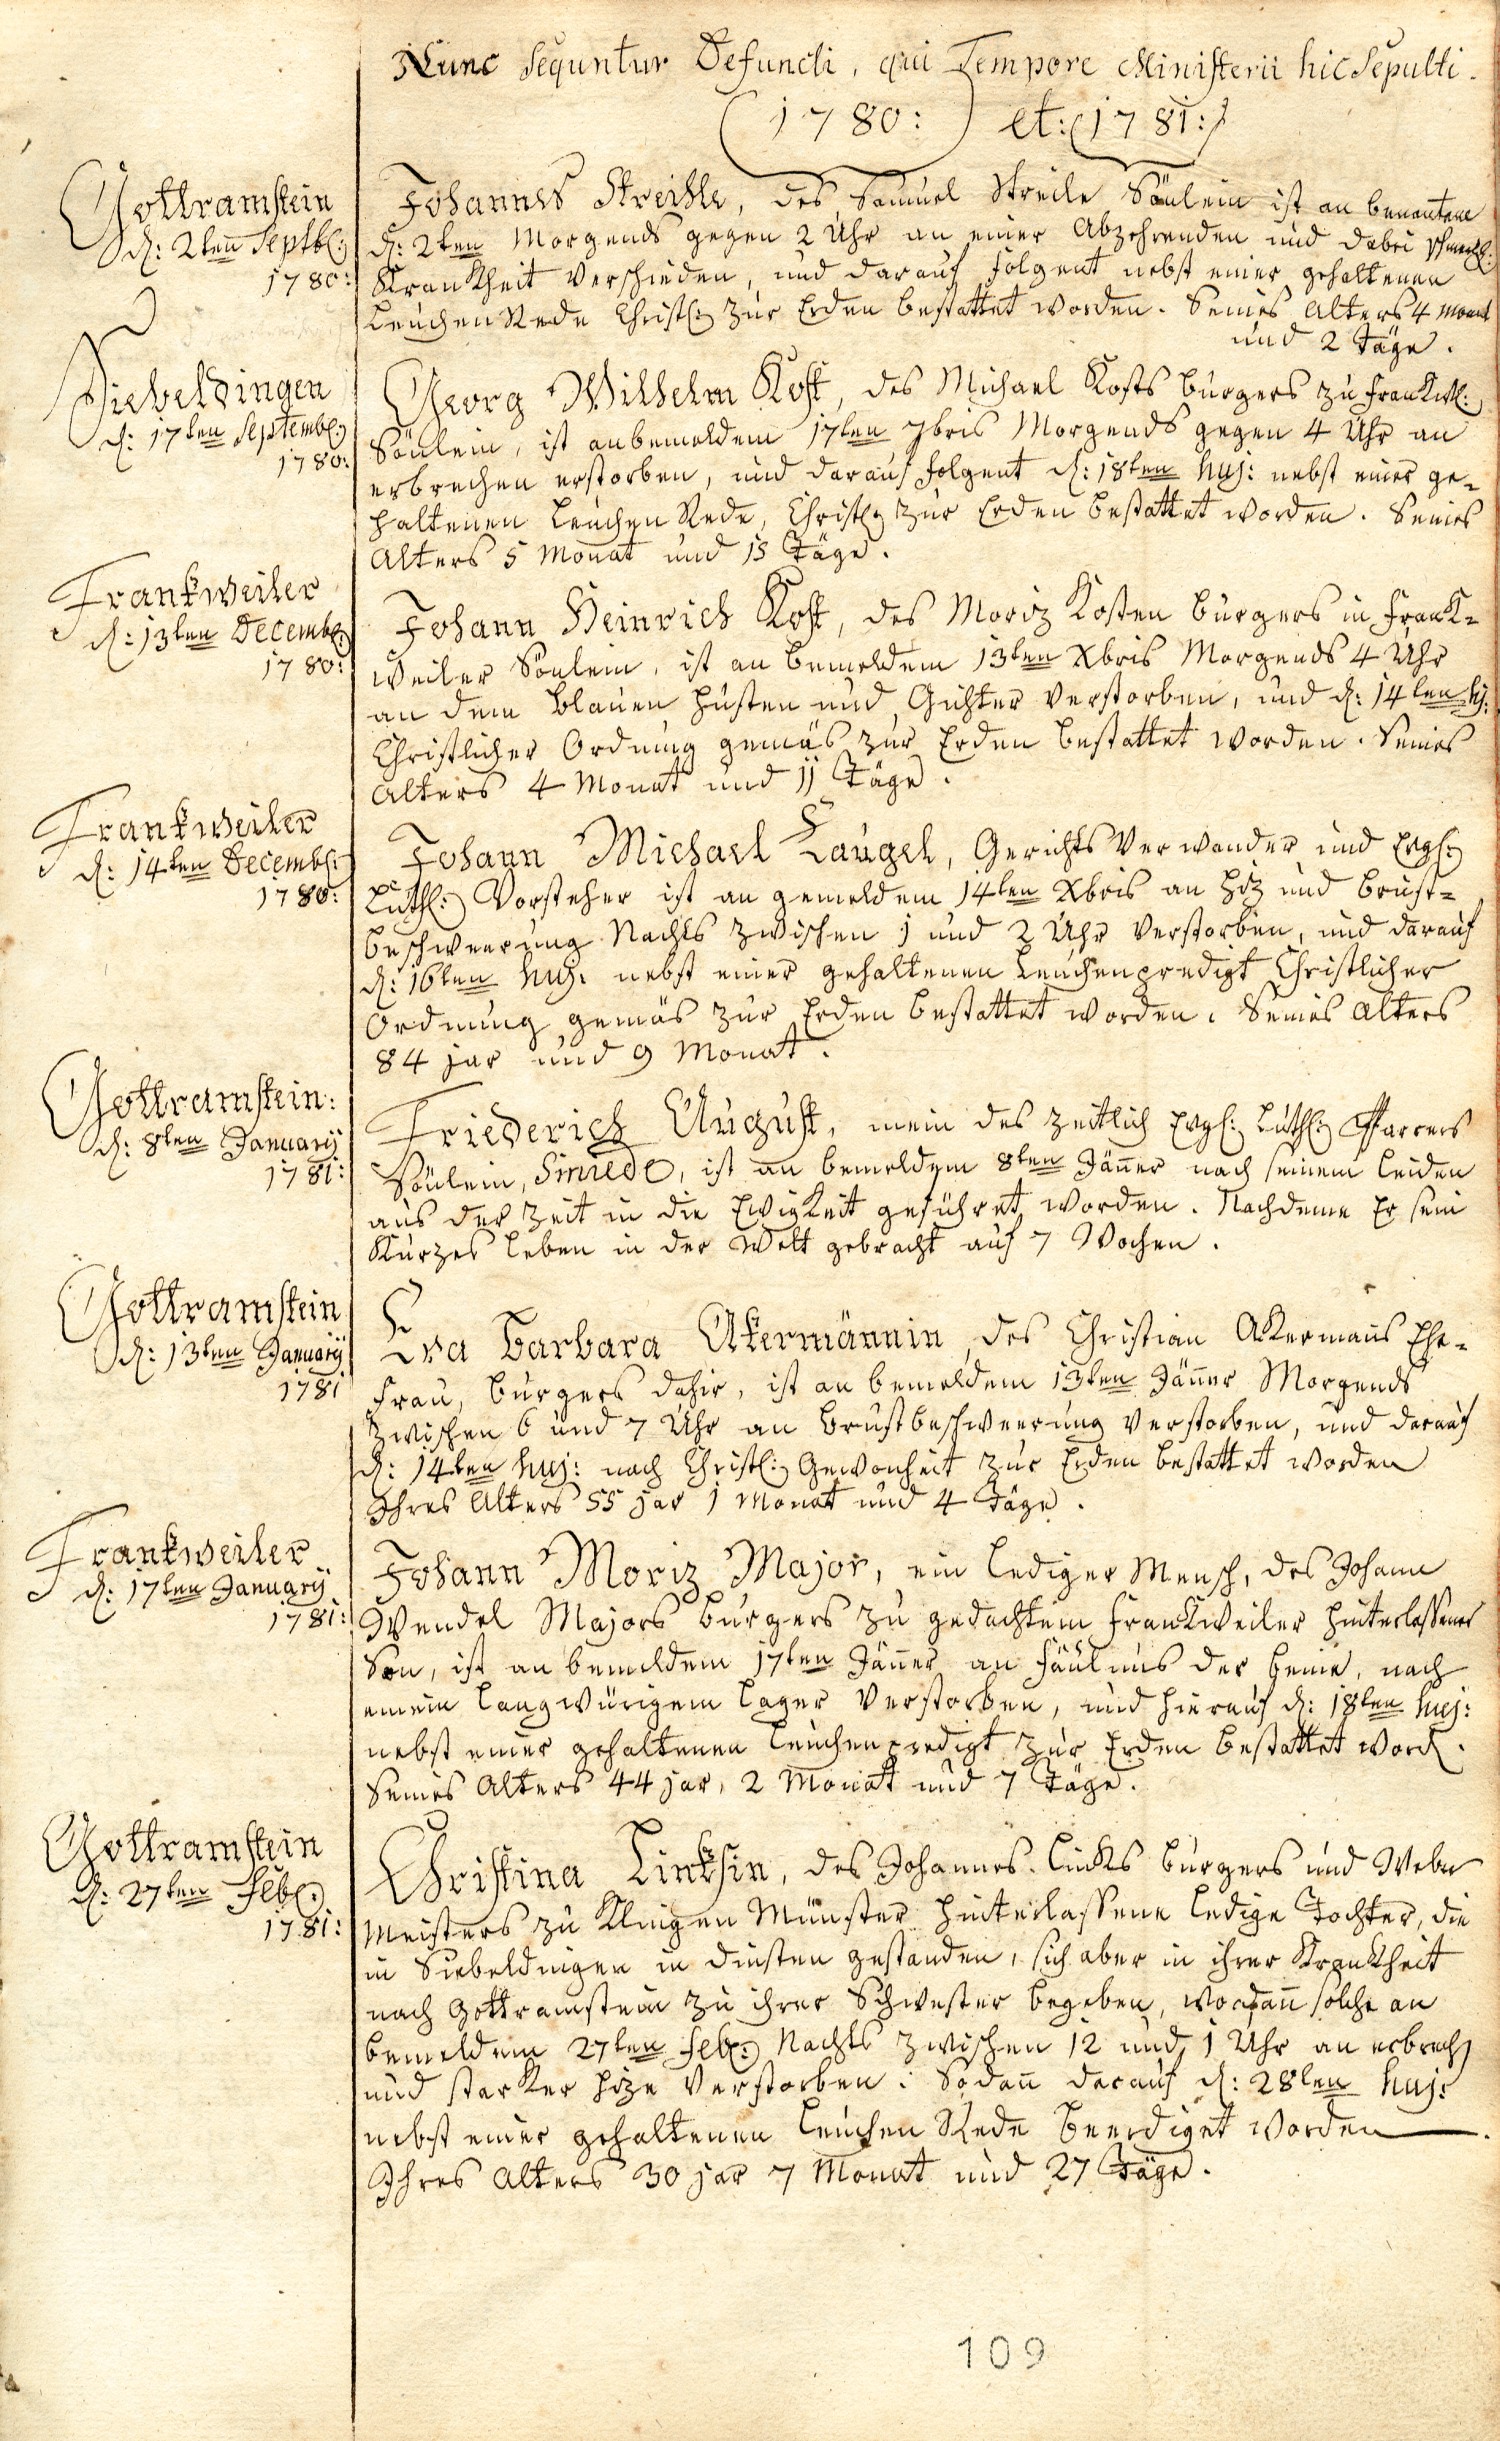 Nunc Sequntur Defuncti, qui Tempore Ministerii hic Sepulti.
(1780:) et: (1781:)
Gottramstein
d: 2ten Septbl:
1780:
Johannes Streihle, des Samuel Streile Sönlein ist an benantem
d: 2ten Morgends gegen 2 Uhr an einer Abzehrenden und dabei schmerzl:
Krankheit verschieden, und darauf folgent nebst einer gehaltenen
Leuchen Rede Christl: zur Erden bestattet worden. Seines Alters 4 Monat
und 2 Täge.
Siebeldingen
d: 17ten Septembl:
1780:
Georg Wilhelm Kost, des Michael Kosts burgers zu Frankwl:
Sönlein, ist an bemeldem 17ten 7bris Morgends gegen 4 Uhr an
erbrechen erstorben, und darauf folgent d: 18ten huj: nebst einer ge-
haltenen Leuchen Rede, Christl: zur Erden bestattet worden. Seines
Alters 5 Monat und 15 Täge.
Frankweiler
d: 13ten Decembl:
1780:
Johann Heinrich Kost, des Moriz Kosten burgers in Frank-
weiler Sönlein, ist an bemeldem 13ten Xbris Morgends 4 Uhr
an dem blauen husten und Gichter verstorben, und d: 14ten hj:
Christlicher Ordnung gemäs zur Erden bestattet worden. Seines
Alters 4 Monat und 11 Täge.
Frankweiler
d: 14ten Decembl:
1780:
Johann Michael Laugel, Gerichts Verwander und Evgl:
Luthl: Vorsteher ist an gemeldem 14ten Xbris an Hiz und brust-
beschweerung Nachts zwischen 1 und 2 Uhr verstorben, und darauf
d: 16ten huj: nebst einer gehaltenen Leuchenpredigt Christlicher
Ordnung gemäs zur Erden bestattet worden. Seines Alters
84 jar und 9 Monat.
Gottramstein:
d: 8ten January
1781:
Friederich August, mein des zeitlich Evgl: Luthl: Pfarrers
Sönlein, Smiede, ist an bemeldem 8ten Jänner nach seinem leiden
aus der Zeit in die Ewigkeit geführet worden. Nachdeme Er sein
Kurzes leben in der Welt gebracht auf 7 Wochen.
Gottramstein
d: 13ten January
1781
Eva Barbara Akermännin, des Christian Akermans Ehe-
frau, burgers dahir, ist an bemeldem 13ten Jänner Morgends
zwischen 6 und 7 Uhr an brustbeschweerung verstorben, und darauf
d: 14ten huj: nach Christl: Gewonheit zur Erden bestattet worden
Ihres Alters 55 jar 1 Monat und 4 Täge.
Frankweiler
d: 17ten January
1781:
Johann Moriz Major, ein lediger Mensch, des Johann
Wendel Majors burgers zu gedachtem Frankweiler hinterlassener
Son, ist an bemeldem 17ten Jänner an fäulnus der beine, nach
einem langwürigem lager verstorben, und hierauf d: 18ten huj:
nebst einer gehaltenen Leuchenpredigt zur Erden bestattet word.
Seines Alters 44 jar, 2 Monat und 7 Täge.
Gottramstein
d: 27ten Febl:
1781:
Christina Linksin, des Johannes Links burgers und Weber
Meisters zu Klingen Münster hinterlassene ledige Tochter, die
in Siebeldingen in dinsten gestanden, sich aber in ihrer Krankheit
nach Gottramstein zu ihrer Schwester begeben, wo dann solche an
bemeldem 27ten febl: Nachts zwischen 12 und 1 Uhr an erbrech
und starker hize verstorben. Sodann darauf d: 28ten huj:
nebst einer gehaltenen Leuchen Rede beerdiget worden.
Ihres Alters 30 jar 7 Monat und 27 Täge.
109